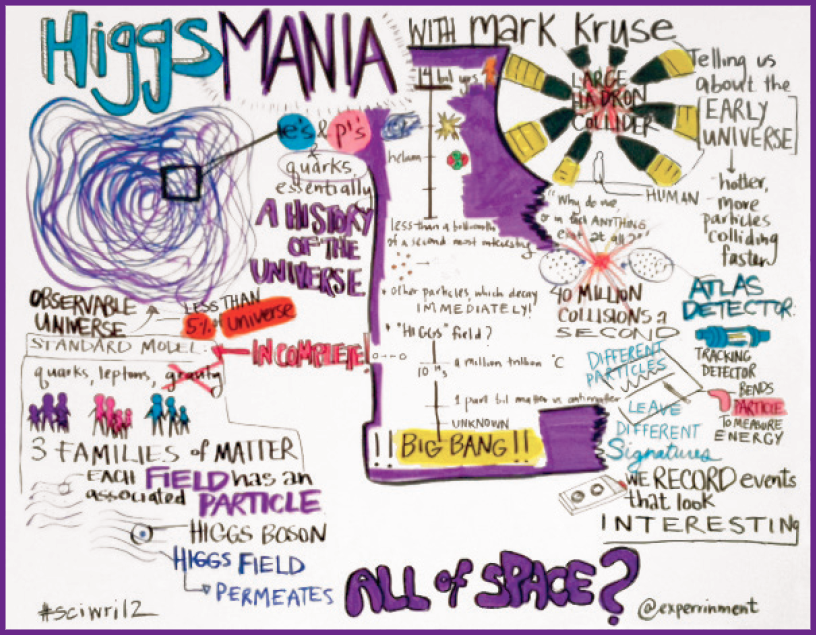 Higgs MANIA
WITH mark Kruse
e's & p's
& quarks,
essentially
A HISTORY
OF THE
UNIVERSE
OBSERVABLE
UNIVERSE
LESS THAN
5% of universe
STANDARD MODEL
INCOMPLETE!
quarks, leptons, gravity
3 FAMILIES of MATTER
EACH FIELD has an
associated PARTICLE
HIGGS BOSON
HIGGS FIELD
PERMEATES
ALL of SPACE?
#sciwri12
14 bil
helium
less than a
of a second most interesting
other particles, which decay
IMMEDIATELY!
"HIGGS" field?
a million trillion °C
1 part bil matter vs antimatter
UNKNOWN
!! BIG BANG!!
LARGE
HADRON
COLLIDER
HUMAN
"Why do we,
or in fact ANYTHING
exist at all?"
40 MILLION
COLLISIONS a
SECOND
Telling us
about the
EARLY
UNIVERSE
hotter,
more
particles
colliding
faster
ATLAS
DETECTOR:
TRACKING
DETECTOR
BENDS
PARTICLE
TO MEASURE
ENERGY
DIFFERENT
PARTICLES
LEAVE
DIFFERENT
Signatures
WE RECORD events
that look
INTERESTING
@experrinment